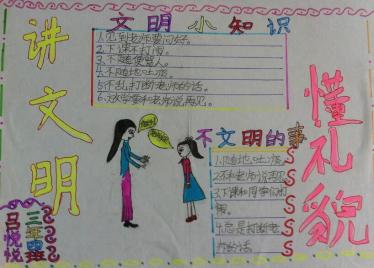 讲文明
懂礼貌
文明小知识
1.见到老师要问好。
2.下课不打闹。
3.不随便骂人。
4.不随地吐痰。
5.不乱打断老师的话。
6.放学要和老师说再见。
不文明的事
1.随地吐痰。
2.不和老师说再见
3.下课和同学们打
闹。
4.总是打断老
师的话。
三年四班
吕悦悦